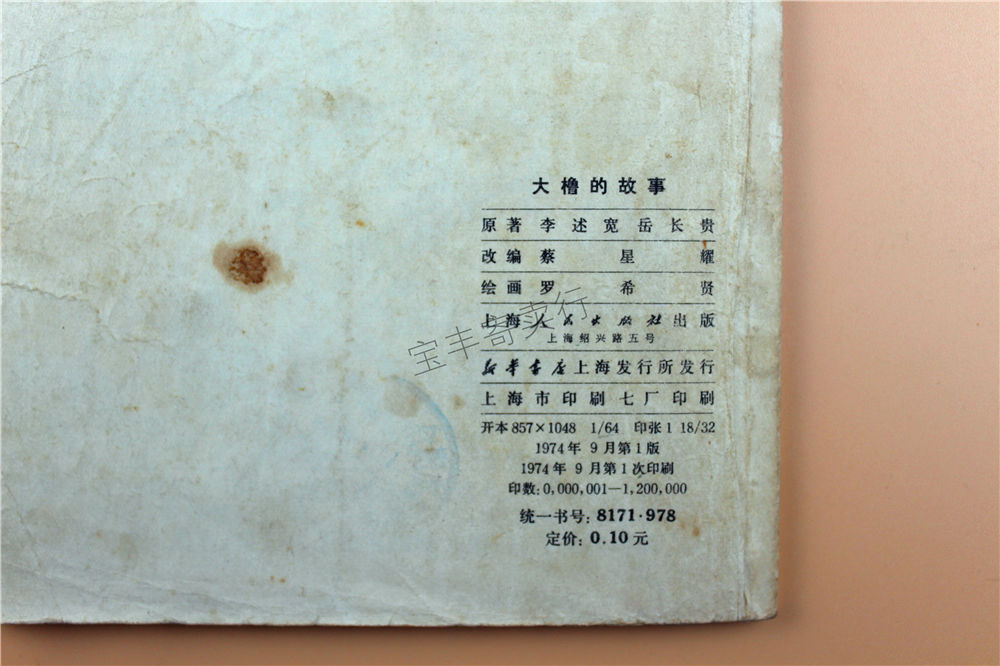 大橹的故事
原著 李述宽 岳长贵
改编 蔡星耀
绘画 罗希贤
上海人民出版社出版
上海绍兴路五号
新华书店上海发行所发行
上海市印刷七厂印刷
开本 857×1048 1/64 印张 1 18/32
1974年 9月第1版
1974年 9月第1次印刷
印数: 0,000,001—1,200,000
统一书号: 8171·978
定价: 0.10 元
宝丰寄卖行